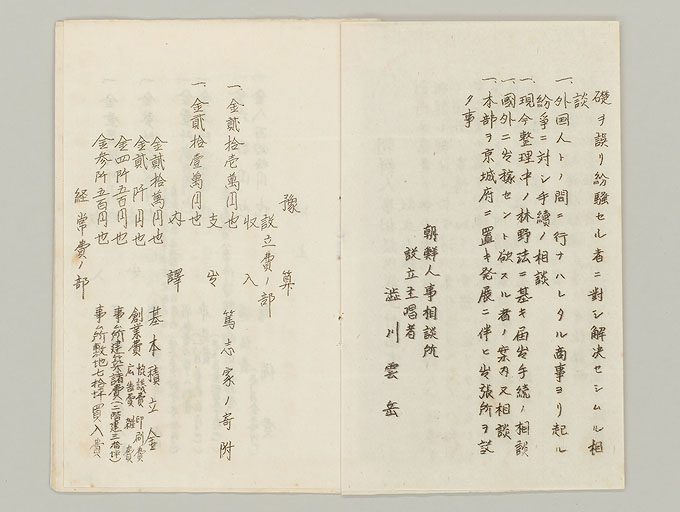 礎ヲ誤リ紛騒セル者ニ對シ解決セシムル相
談
一、外国人トノ間ニ行ナハレタル商事ヨリ起ル
紛爭ニ対シ手續ノ相談
一、現今整理中ノ林野法ニ基キ届出手続ノ相談
一、國外ニ出稼セント欲スル者ノ案内又相談
一、本部ヲ京城府ニ置キ発展ニ伴ヒ出張所ヲ設
ク事
朝鮮人事相談所
設立主唱者
澁川雲岳
豫算
設立費ノ部
収入
一、金貳拾壱萬円也 篤志家ノ寄附
支出
一、金貳拾壹萬円也
内譯
金貳拾萬円也 基本積立金
金貳阡円也 創業費 設談費 印刷費 広告費 雜費
金四阡五百円也 事ム所建築諸費(二階建三拾坪)
金参阡五百円也 事ム所敷地七拾坪買入費
経常費ノ部